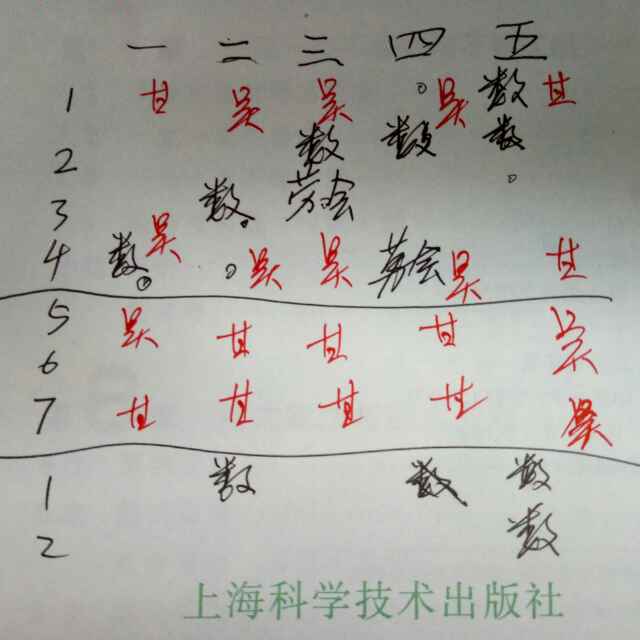 一 二 三 四 五
1 甘 吴 吴 吴 数 甘
2 数 数 数
3 数 劳会
4 数 吴 吴 吴 劳会 吴 甘
5 吴 甘 甘 甘 吴
6
7 甘 甘 甘 甘 吴
1 数 数 数
2 数
上海科学技术出版社